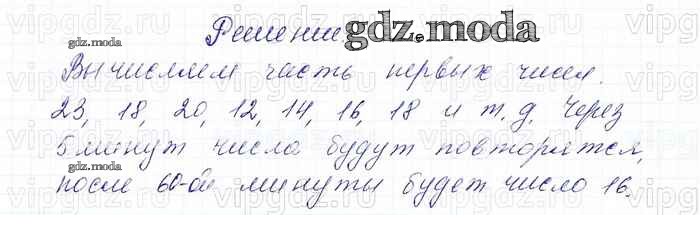 Решение
gdz.moda
gdz.moda
Вычисляем часть первых чисел.
23, 18, 20, 12, 14, 16, 18 и т.д. Через
5 минут числа будут повторятся,
gdz.moda
после 60-ой минуты будет число 16.